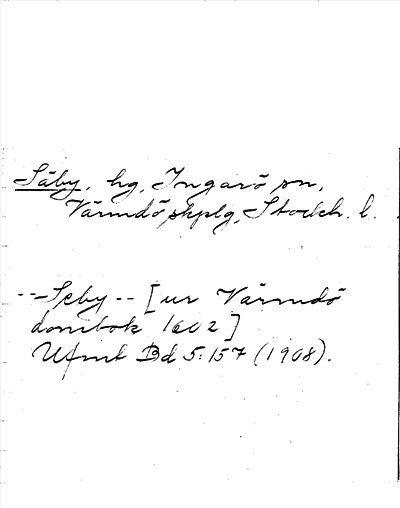 Säby, hg, Ingarö sn,
Värmdö skplg, Stockh. l.
-- Seby -- [ur Värmdö
dombok 1602]
Ufmt Bd 5:157 (1908).